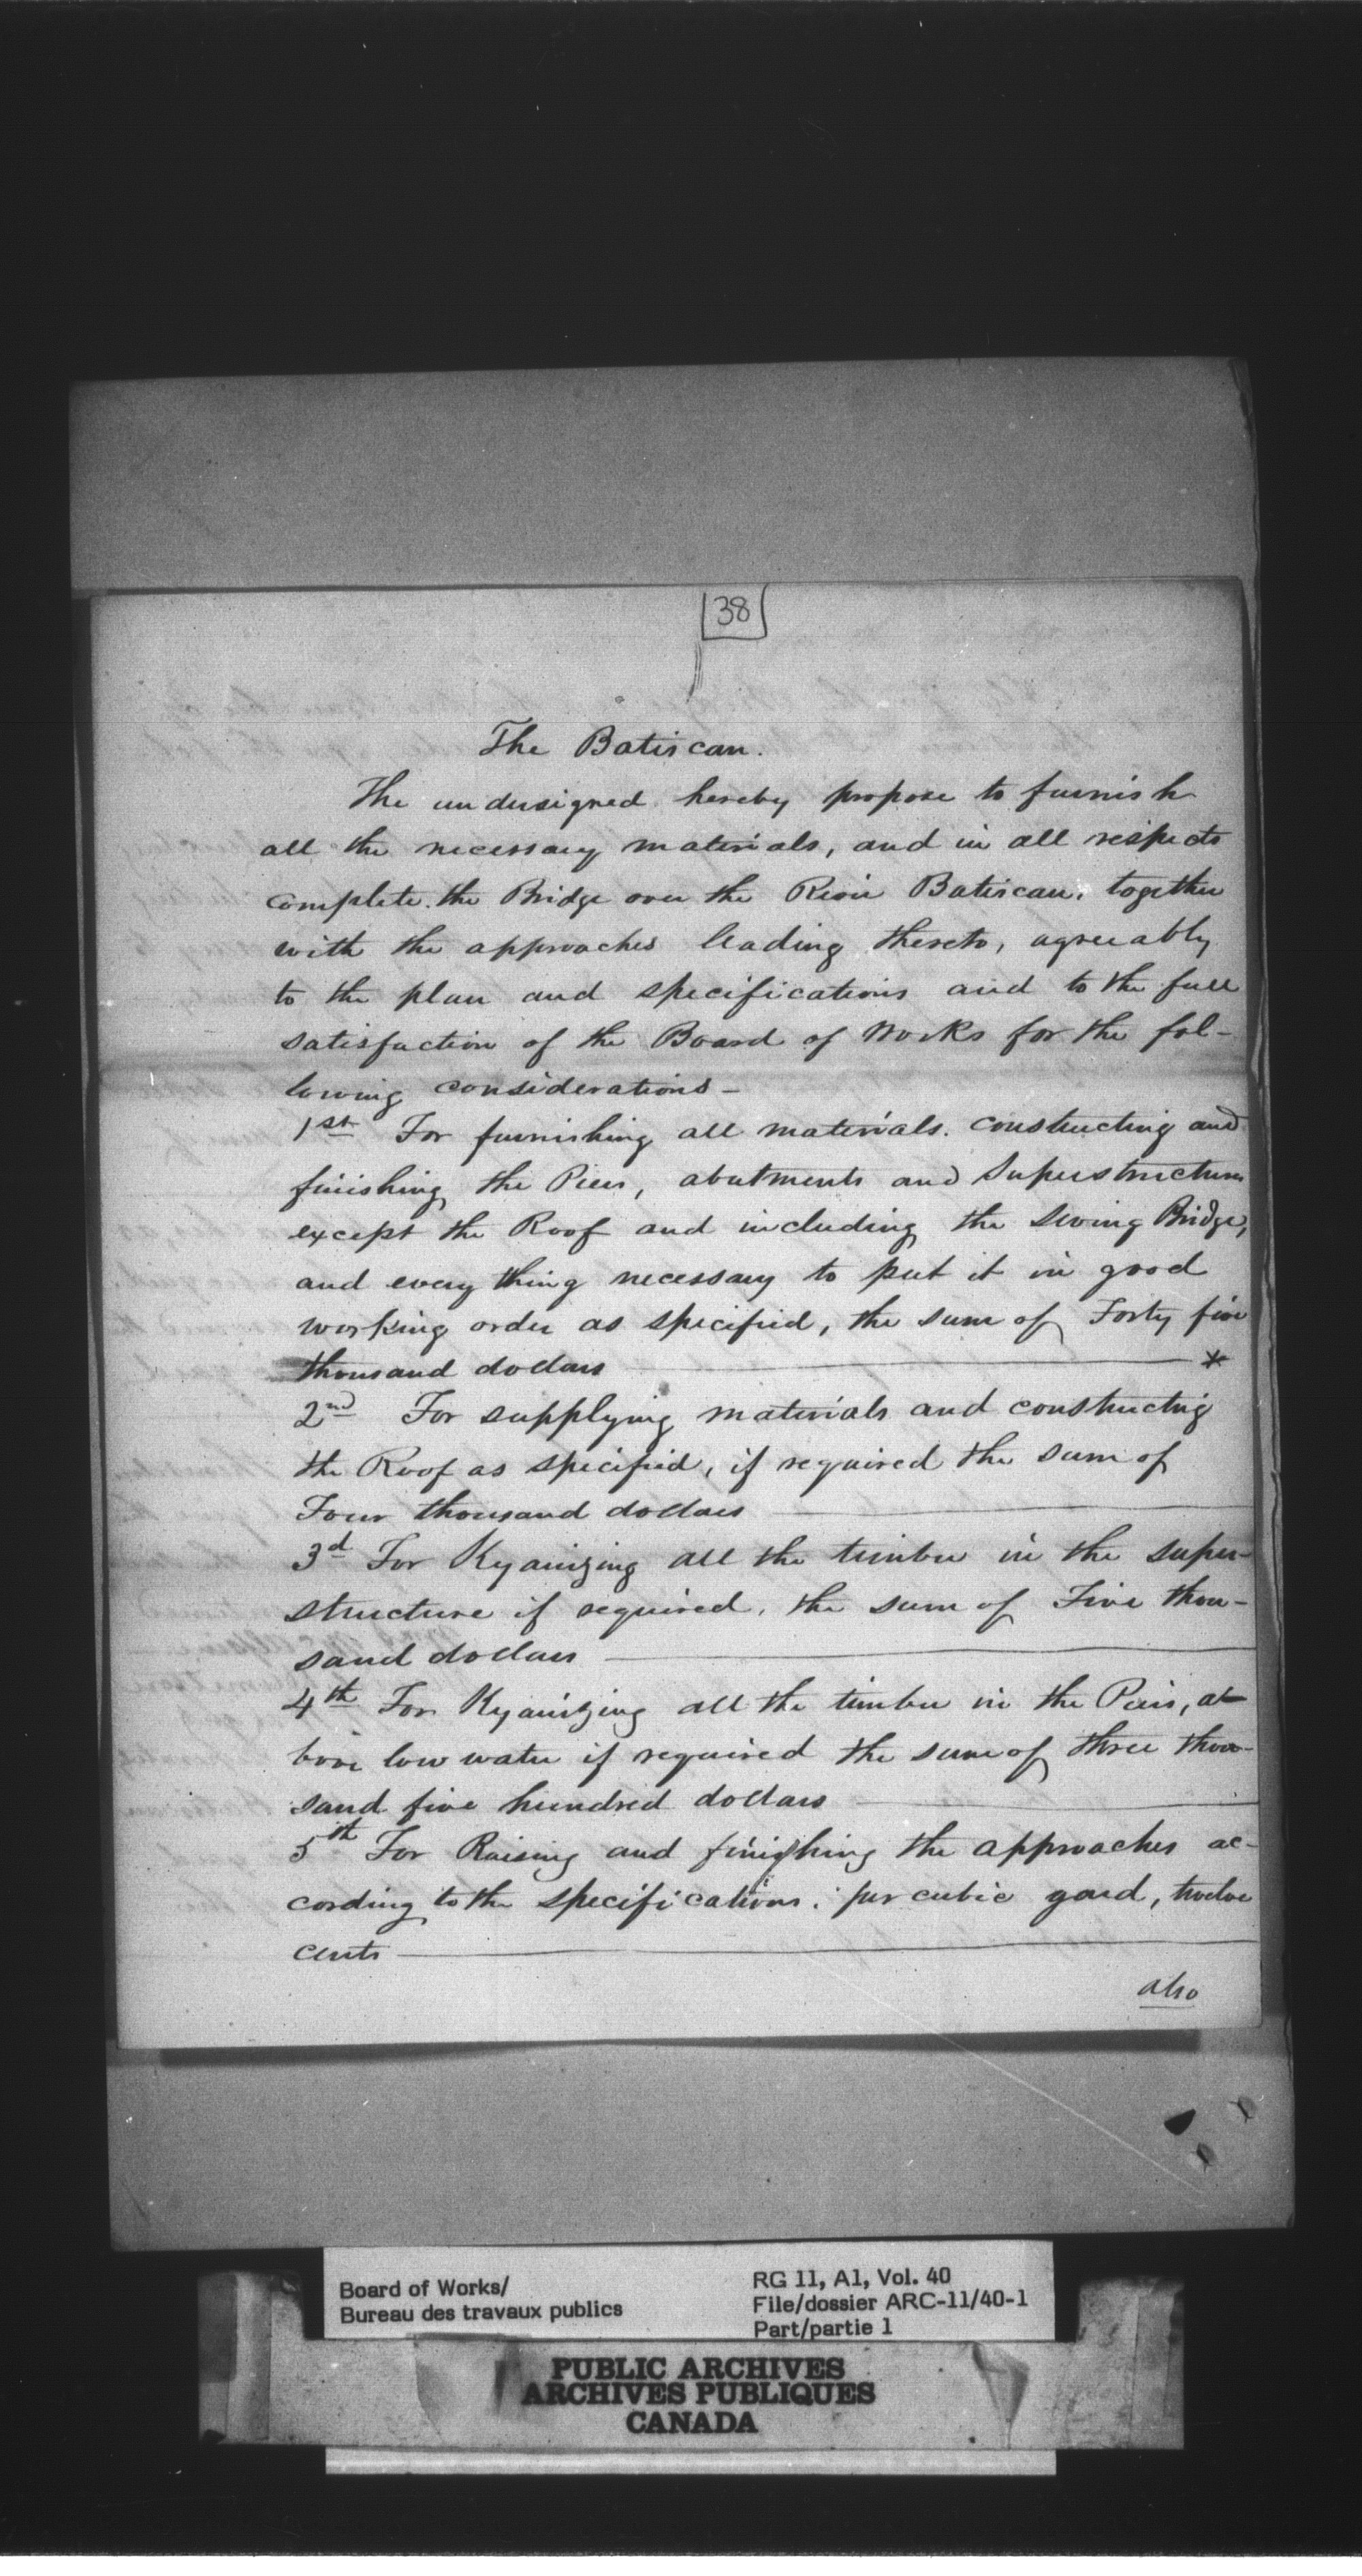 38
The Batiscan.
The undersigned hereby propose to furnish
all the necessary materials, and in all respects
complete the Bridge over the River Batiscan, together
with the approaches leading thereto, agreeably
to the plan and specifications and to the full
satisfaction of the Board of Works for the fol-
lowing considerations -
1st For furnishing all materials. constructing and
finishing the Piers, abutments and Superstructure
except the Roof and including the Swing Bridge,
and every thing necessary to put it in good
working order as specified, the sum of Forty five
thousand dollars *
2nd For supplying materials and constructing
the Roof as specified, if required the sum of
Four thousand dollars
3d For Kyanizing all the timber in the super-
structure if required, the sum of Five thou-
sand dollars
4th For Kyanizing all the timber in the Peirs, a-
bove low water if required the sum of three thou-
sand five hundred dollars
5th For Raising and finishing the approaches ac-
cording to the specifications. per cubic yard, twelve
cents
also
Board of Works/
Bureau des travaux publics
RG 11, A1, Vol. 40
File/dossier ARC-11/40-1
Part/partie 1
PUBLIC ARCHIVES
ARCHIVES PUBLIQUES
CANADA